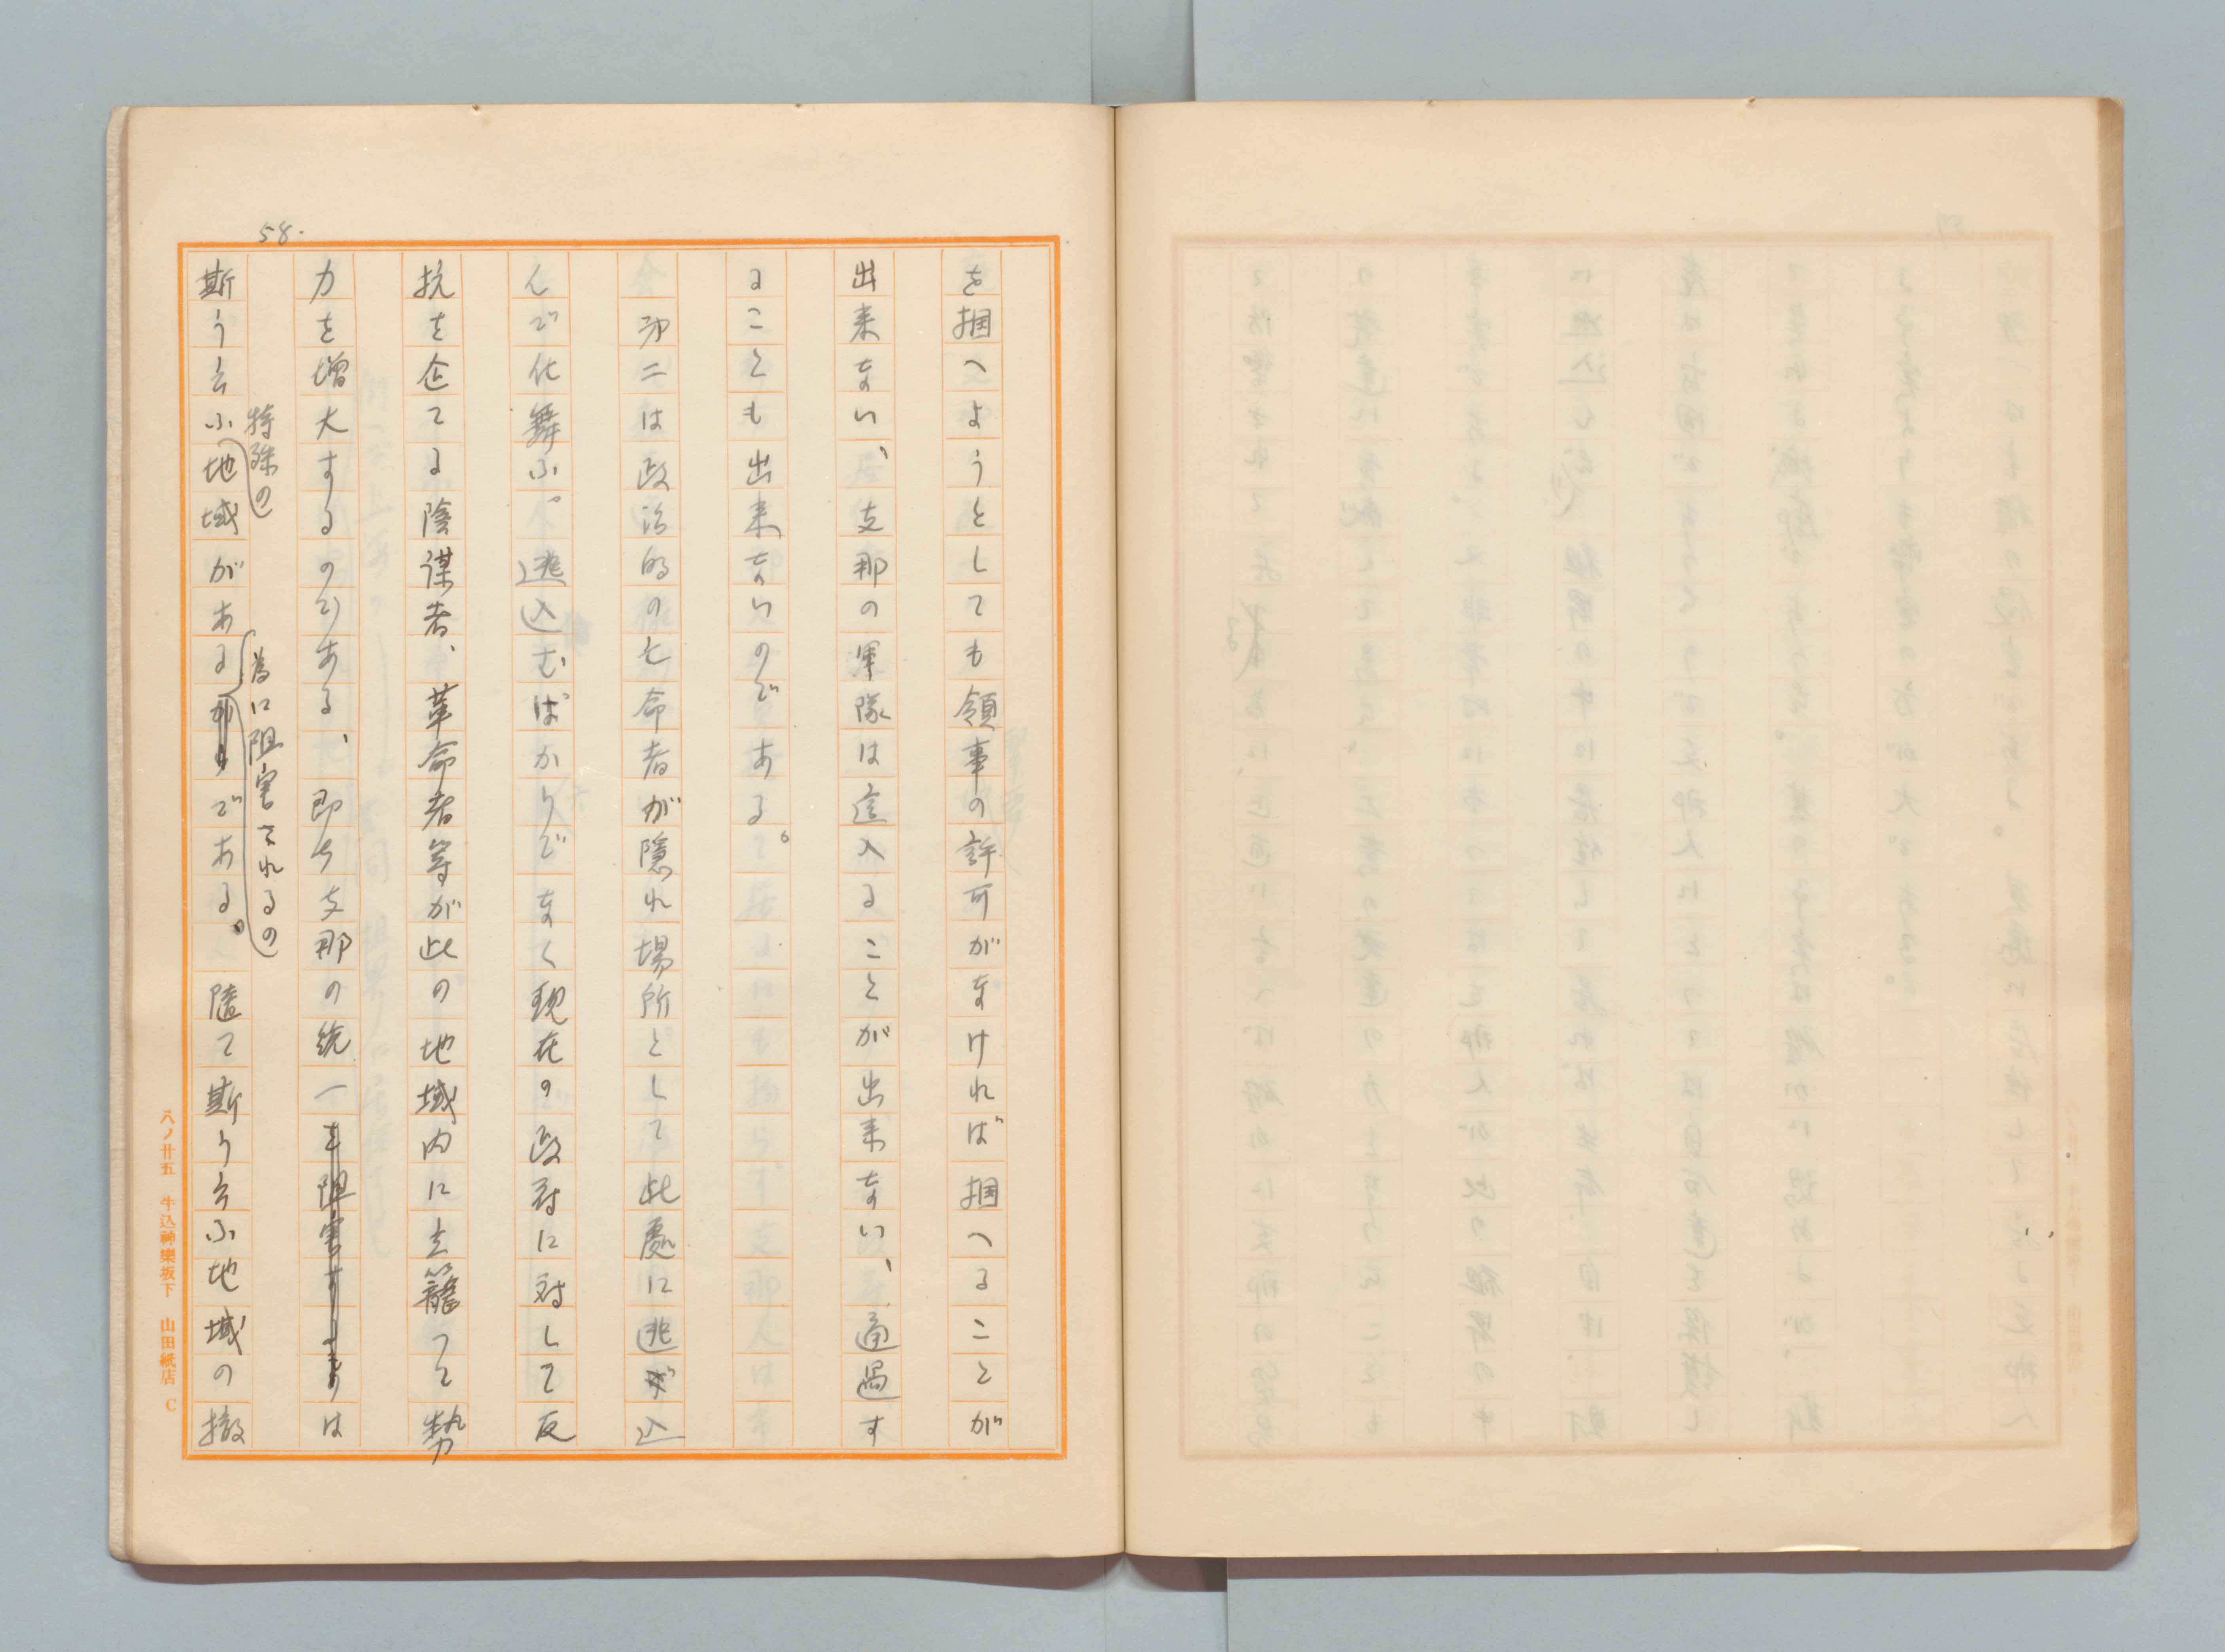 58.
を掴へようとしても領事の許可がなければ掴へることが
出来ない、支那の軍隊は這入ることが出来ない、通過す
ることも出来ないのである。
第二は政治的の亡命者が隠れ場所として此處に逃げ込
んで仕舞ふ。逃込むばかりでなく現在の政府に対して反
抗を企てる陰謀者、革命者等が此の地域内に立籠って勢
力を増大するのである、即ち支那の統一を阻害するのは
特殊の 為に阻害されるの
斯う云ふ地域があるからである。随て斯う云ふ地域の撤
八ノ廿五 牛込神樂坂下 山田紙店 C